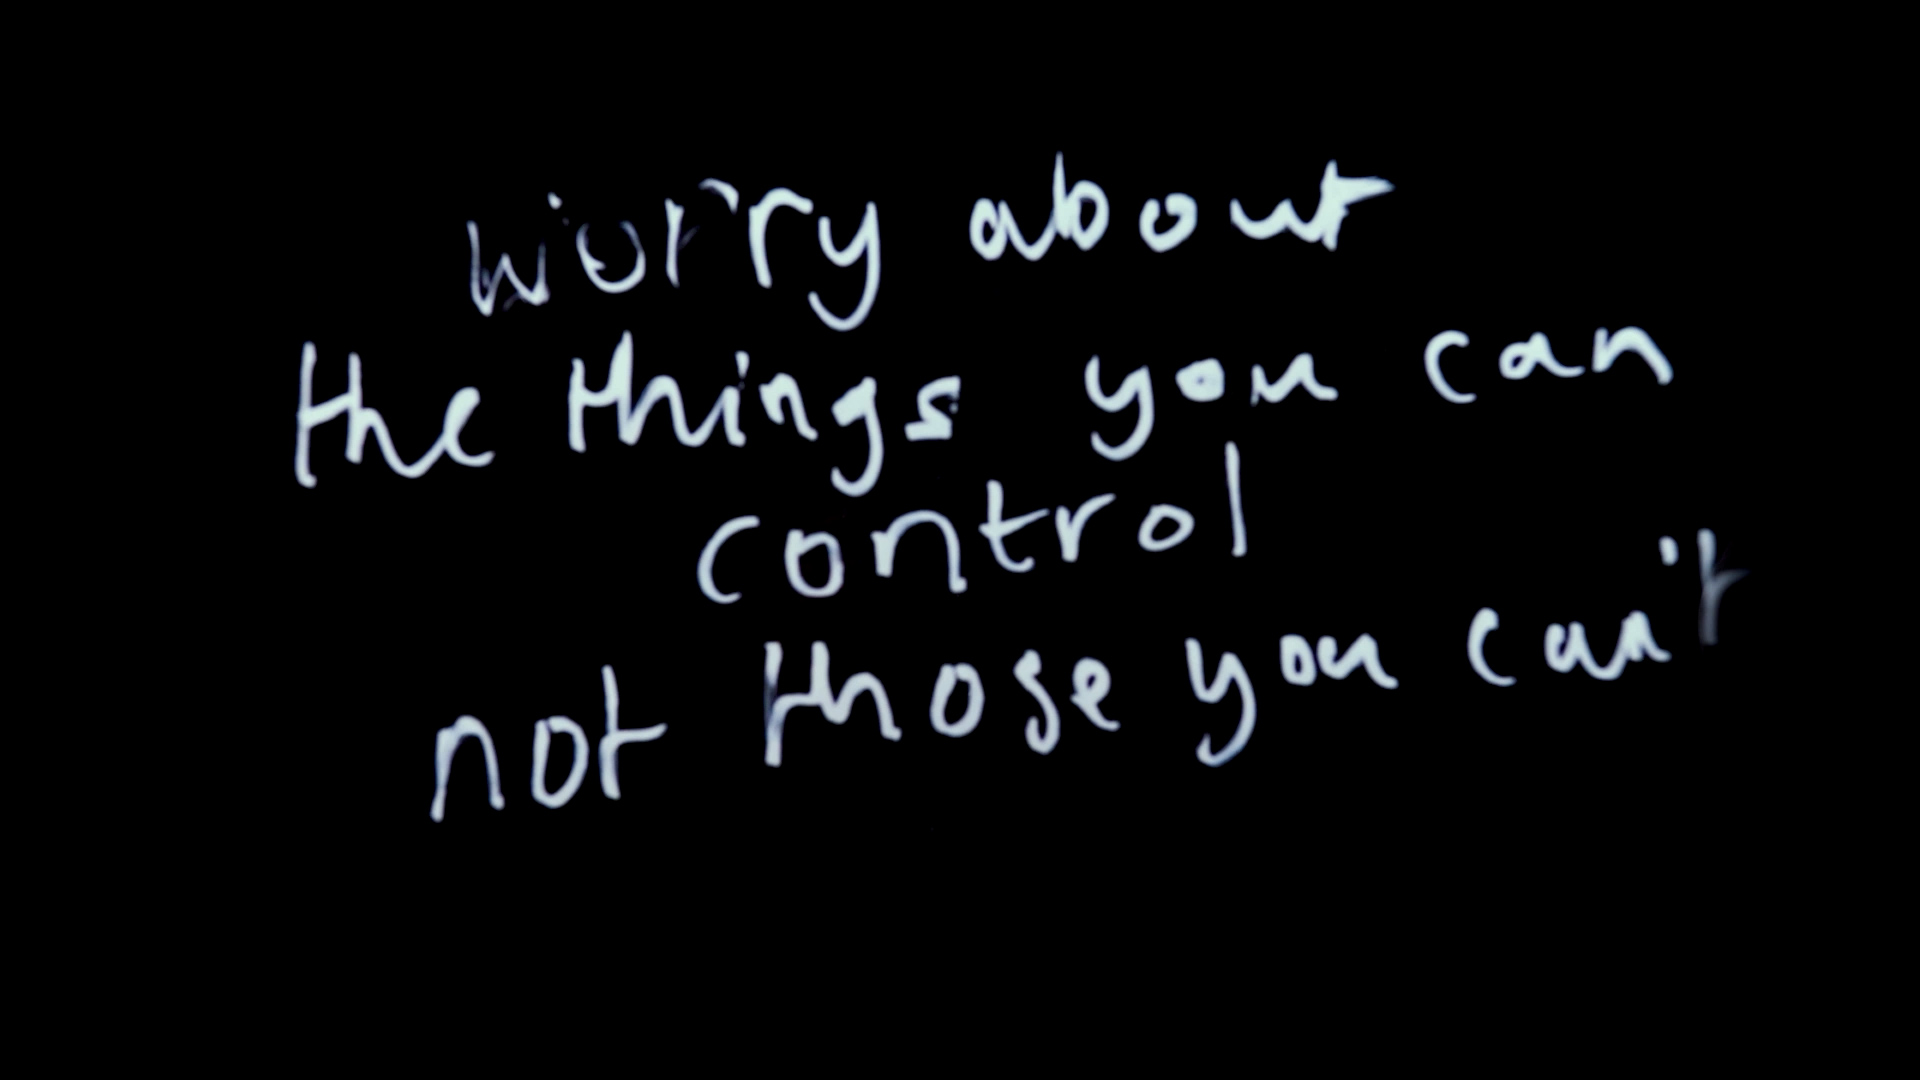 worry about
the things you can
control
not those you can't